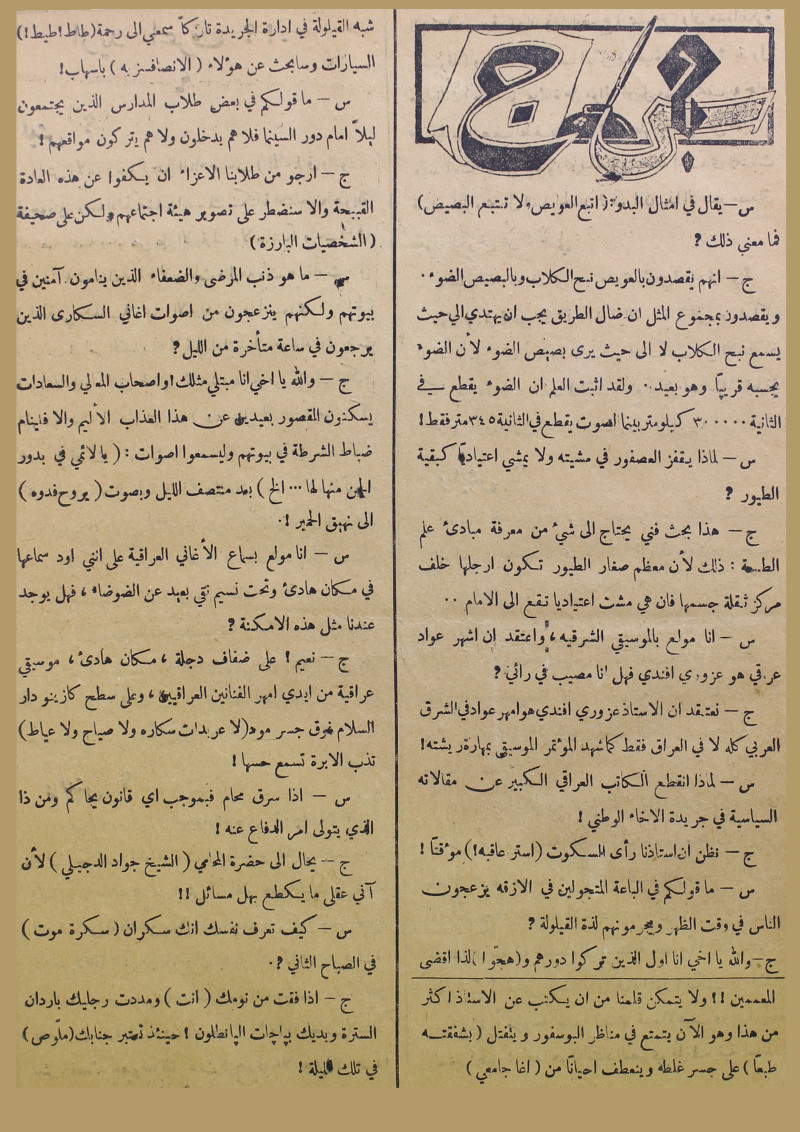 س ج
س — يقال في امثال البدو: (اتبع العويص ولا تتبع البصيص)
فما معنى ذلك ?
ج — انهم يقصدون بالعويص نبح الكلاب وبالبصيص الضوء ٠
ويقصدون بمجموع المثل ان ضال الطريق يجب ان يهتدي الى حيث
يسمع نبح الكلاب لا الى حيث يرى بصيص الضوء لأن الضوء
يحسبه قريبًا وهو بعيد ٠ ولقد اثبت العلم ان الضوء يقطع في
الثانية ٣٠٠٠٠٠ كيلومتر بينما الصوت يقطع في الثانية ٣٤٥ متر فقط !
س — لماذا يقفز العصفور في مشيته ولا يمشي اعتياديًا كبقية
الطيور ?
ج — هذا بحث فني يحتاج الى شيء من معرفة مبادئ علم
الطبيعة : ذلك لأن معظم صغار الطيور تكون ارجلها خلف
مركز ثقلة جسمها فان هي مشت اعتياديا تقع الى الامام ٠٠
س — انا مولع بالموسيقى الشرقيه ، واعتقد ان اشهر عواد
عرقي هو عزوري افندي فهل انا مصيب في رائي ?
ج — نعتقد ان الاستاذ عزوري افندي هو امهر عواد في الشرق
العربي كله لا في العراق فقط كما شهد المؤتمر الموسيقي بمهارة ريشته !
س — لماذا انقطع الكاتب العراقي الكبير عن مقالاته
السياسية في جريدة الاخاء الوطني !
ج — نظن ان استاذنا رأى السكوت (استر عاقبه!) موقتًا !
س — ما قولكم في الباعة المتجولين في الازقه يزعجون
الناس في وقت الظهر ويحرمونهم لذة القيلولة ?
ج — والله يا اخي انا اول الذين تركوا دورهم و(هجّوا) لذا اقضى
المعممين !! ولا يتمكن قلمنا من ان يكتب عن الاستاذ اكثر
من هذا وهو الآن يتمتع في مناظر البوسفور ويتفتل (بشفقته
طبعًا) على جسر غلطه وينعطف احيانًا من (اغا جامعي)
شبه القيلولة في ادارة الجريدة تاركًا سمعي الى رحمة (طاط! طيط!)
السيارات وسابحث عن هؤلاء (الانصافسزيه) باسهاب!
س — ما قولكم في بعض طلاب المدارس الذين يجتمعون
ليلاً امام دور السينما فلا هم يدخلون ولا هم يتركون مواقعهم !
ج — ارجو من طلابنا الاعزاء ان يكفوا عن هذه العادة
القبيحة والا سنضطر على تصوير هيئة اجتماعهم ولكن على صحيفة
(الشخصيات البارزة)
س — ما هو ذنب المرضى والضعفاء الذين ينامون آمنين في
بيوتهم ولكنهم ينزعجون من اصوات اغاني السكارى الذين
يرجعون في ساعة متأخرة من الليل ?
ج — والله يا اخي انا مبتلي مثلك ! واصحاب المعالي والسعادات
يسكنون القصور بعيدين عن هذا العذاب الأليم والا فلينام
ضباط الشرطة في بيوتهم وليسمعوا اصوات : (يا لائمي في بدور
الحن منها لها ... الخ) بعد منتصف الليل وبصوت (يروح فدوه)
الى نهيق الحمير ! ٠
س — انا مولع بسماع الأغاني العراقية على انني اود سماعها
في مكان هادئ وتحت نسيم نقي بعيد عن الضوضاء ، فهل يوجد
عندنا مثل هذه الامكنة ?
ج — نعيم ! على ضفاف دجلة ، مكان هادئ ، موسيقى
عراقية من ايدي امهر الفنانين العراقيين ، وعلى سطح كازينو دار
السلام فوق جسر مود (لا عربدات سكاره ولا صياح ولا عياط)
تذب الابرة تسمع حسها !
س — اذا سرق محام فبموجب اي قانون يحاكم ومن ذا
الذي يتولى امر الدفاع عنه !
ج — يحال الى حضرة المحامي (الشيخ جواد الدجيلي) لأن
آني عقلي ما يكطع بهل مسائل !!
س — كيف تعرف نفسك انك سكران (سكرة موت)
في الصباح الثاني ? ٠
ج — اذا فقت من نومك (انت) ومددت رجليك باردان
السترة ويديك بپاچات الپانطلون ! حينئذ تعتبر جنابك (ملّوص)
في تلك الليلة !